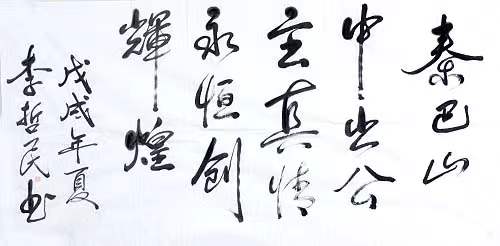 秦巴山
中出公
主真情
永恒创
輝煌
戊戌年夏
李哲民书